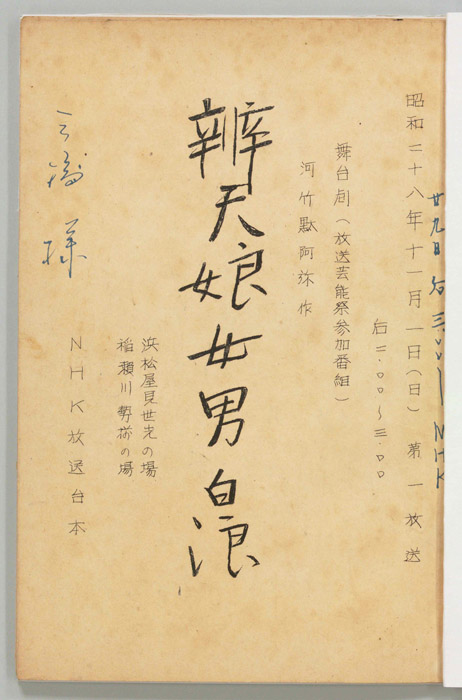 廿九日 后 三.〇〇— NHK
昭和二十八年十一月一日(日) 第一放送
后二.〇〇〜三.〇〇
舞台劇(放送芸能祭参加番組)
河竹默阿弥作
辨天娘女男白浪
浜松屋見世先の場
稲瀬川勢揃の場
NHK放送台本
様